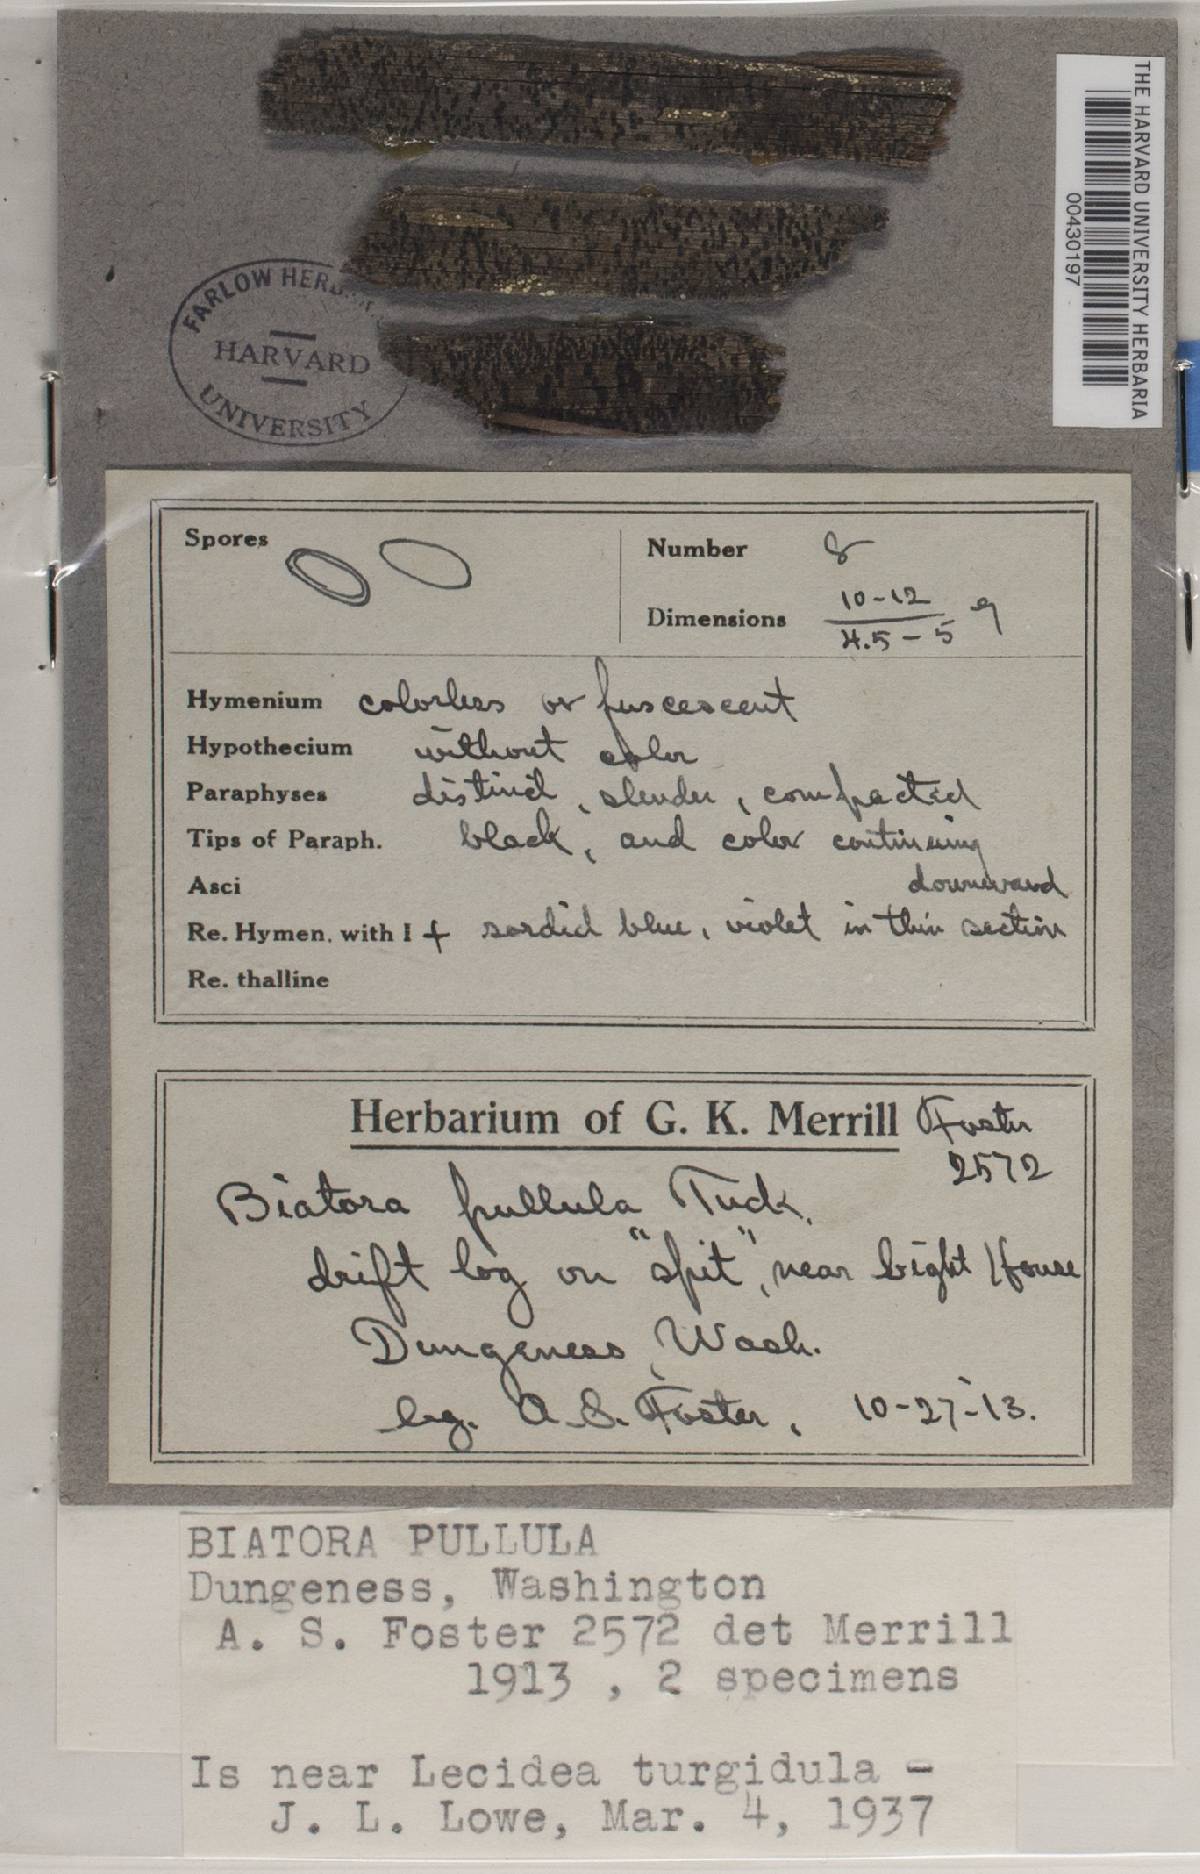 THE HARVARD UNIVERSITY HERBARIA
00430197
FARLOW HERB
HARVARD
UNIVERSITY
Spores
Number 8
Dimensions 10-12
4.5-5
Hymenium colorless or fuscescent
Hypothecium without color
Paraphyses distinct, slender, compacted
Tips of Paraph. black, and color continuing
downward
Asci
Re. Hymen. with I + sordid blue, violet in thin section
Re. thalline
Herbarium of G. K. Merrill Foster
2572
Biatora pullula Tuck.
drift log on "spit", near Light House
Dungeness, Wash.
leg. A. S. Foster, 10-27-13.
BIATORA PULLULA
Dungeness, Washington
A. S. Foster 2572 det Merrill
1913 , 2 specimens
Is near Lecidea turgidula -
J. L. Lowe, Mar. 4, 1937